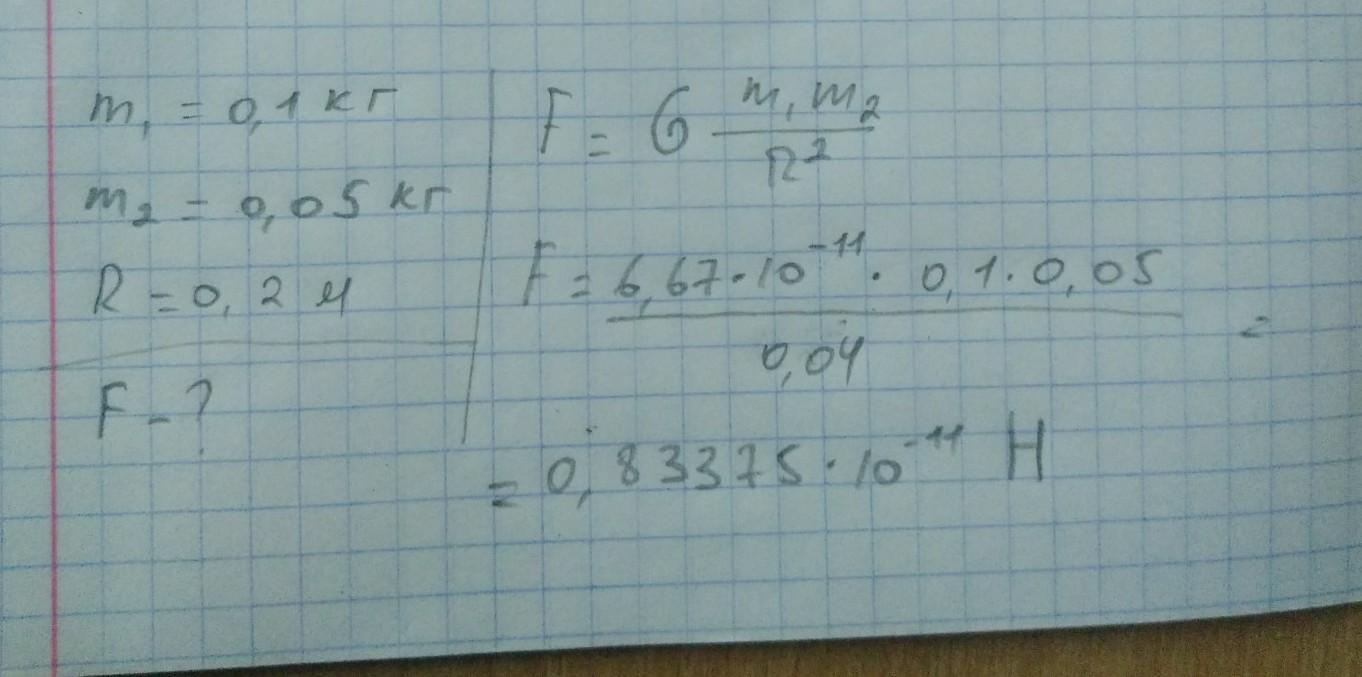 m₁ = 0,1 кг
m₂ = 0,05 кг
R = 0,2 м
F - ?
F = G m₁m₂ / R²
F = 6,67·10⁻¹¹ · 0,1 · 0,05 / 0,04 =
= 0,83375·10⁻¹¹ Н